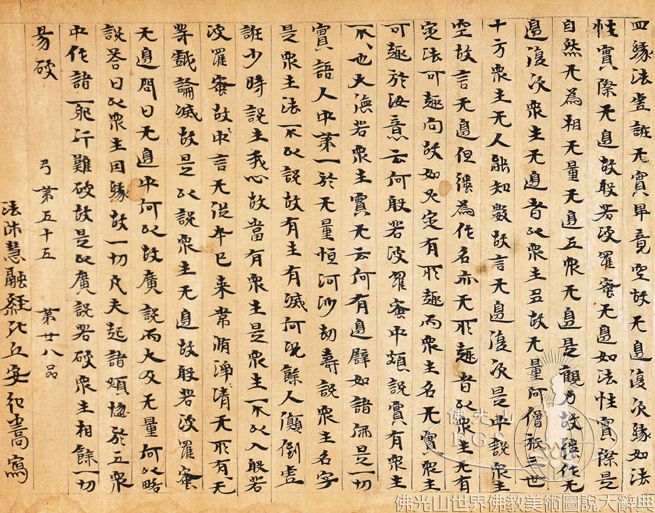 四緣法虛誑无實畢竟空故无邊復次緣如法
性實際无邊故般若波羅蜜无邊如法性實際是
自然无為相无量无邊五衆无邊是觀力故强作无
邊復次衆生无邊者以衆生多故无量阿僧祇三世
十方衆生无人能知數故言无邊復次是中說衆生
空故言无邊但强為作名亦无所趣者以衆生无有
定法可趣向故如火定有所趣而衆生名无實衆生
可趣於汝意云何般若波羅蜜中頗說實有衆生
不不也大德若衆生實无云何有邊譬如諸佛是一切
實語人中第一於无量恒河沙劫壽說衆生名字
是衆生法不以說故有生有滅何況餘人顛倒虛
誑少時說生我心故當有衆生是衆生不以入般若
波羅蜜故中言无從本已来常清淨清无所有无
等戲論滅故是以說衆生无邊故般若波羅蜜
无邊問曰无邊中何以故廣說而大及无量何以略
說荅曰以衆生因緣故一切凡夫起諸煩惱於五衆
中作諸一耶行難破故是以廣說若破衆生相餘一切
易破
弓第五十五 第廿八品
法師慧融經比丘安弘嵩寫
佛光山
佛光山世界佛教美術圖說大辭典